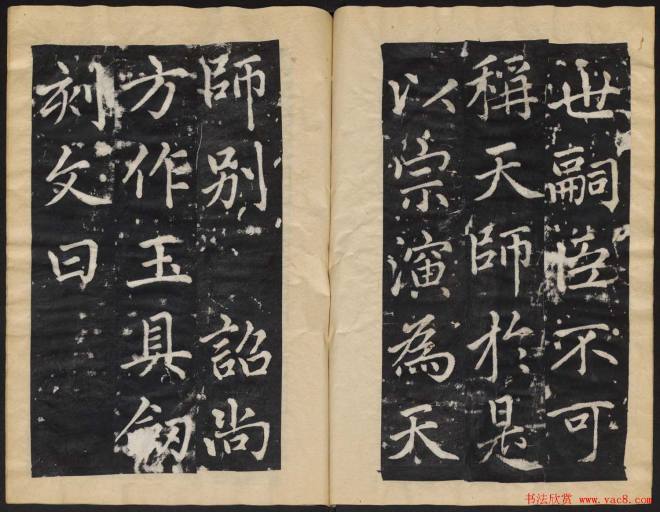 世嗣臣不可
稱天師於是
以宗演為天
師别 詔尚
方作玉具釼
刻文曰
书法欣赏 www.yac8.com